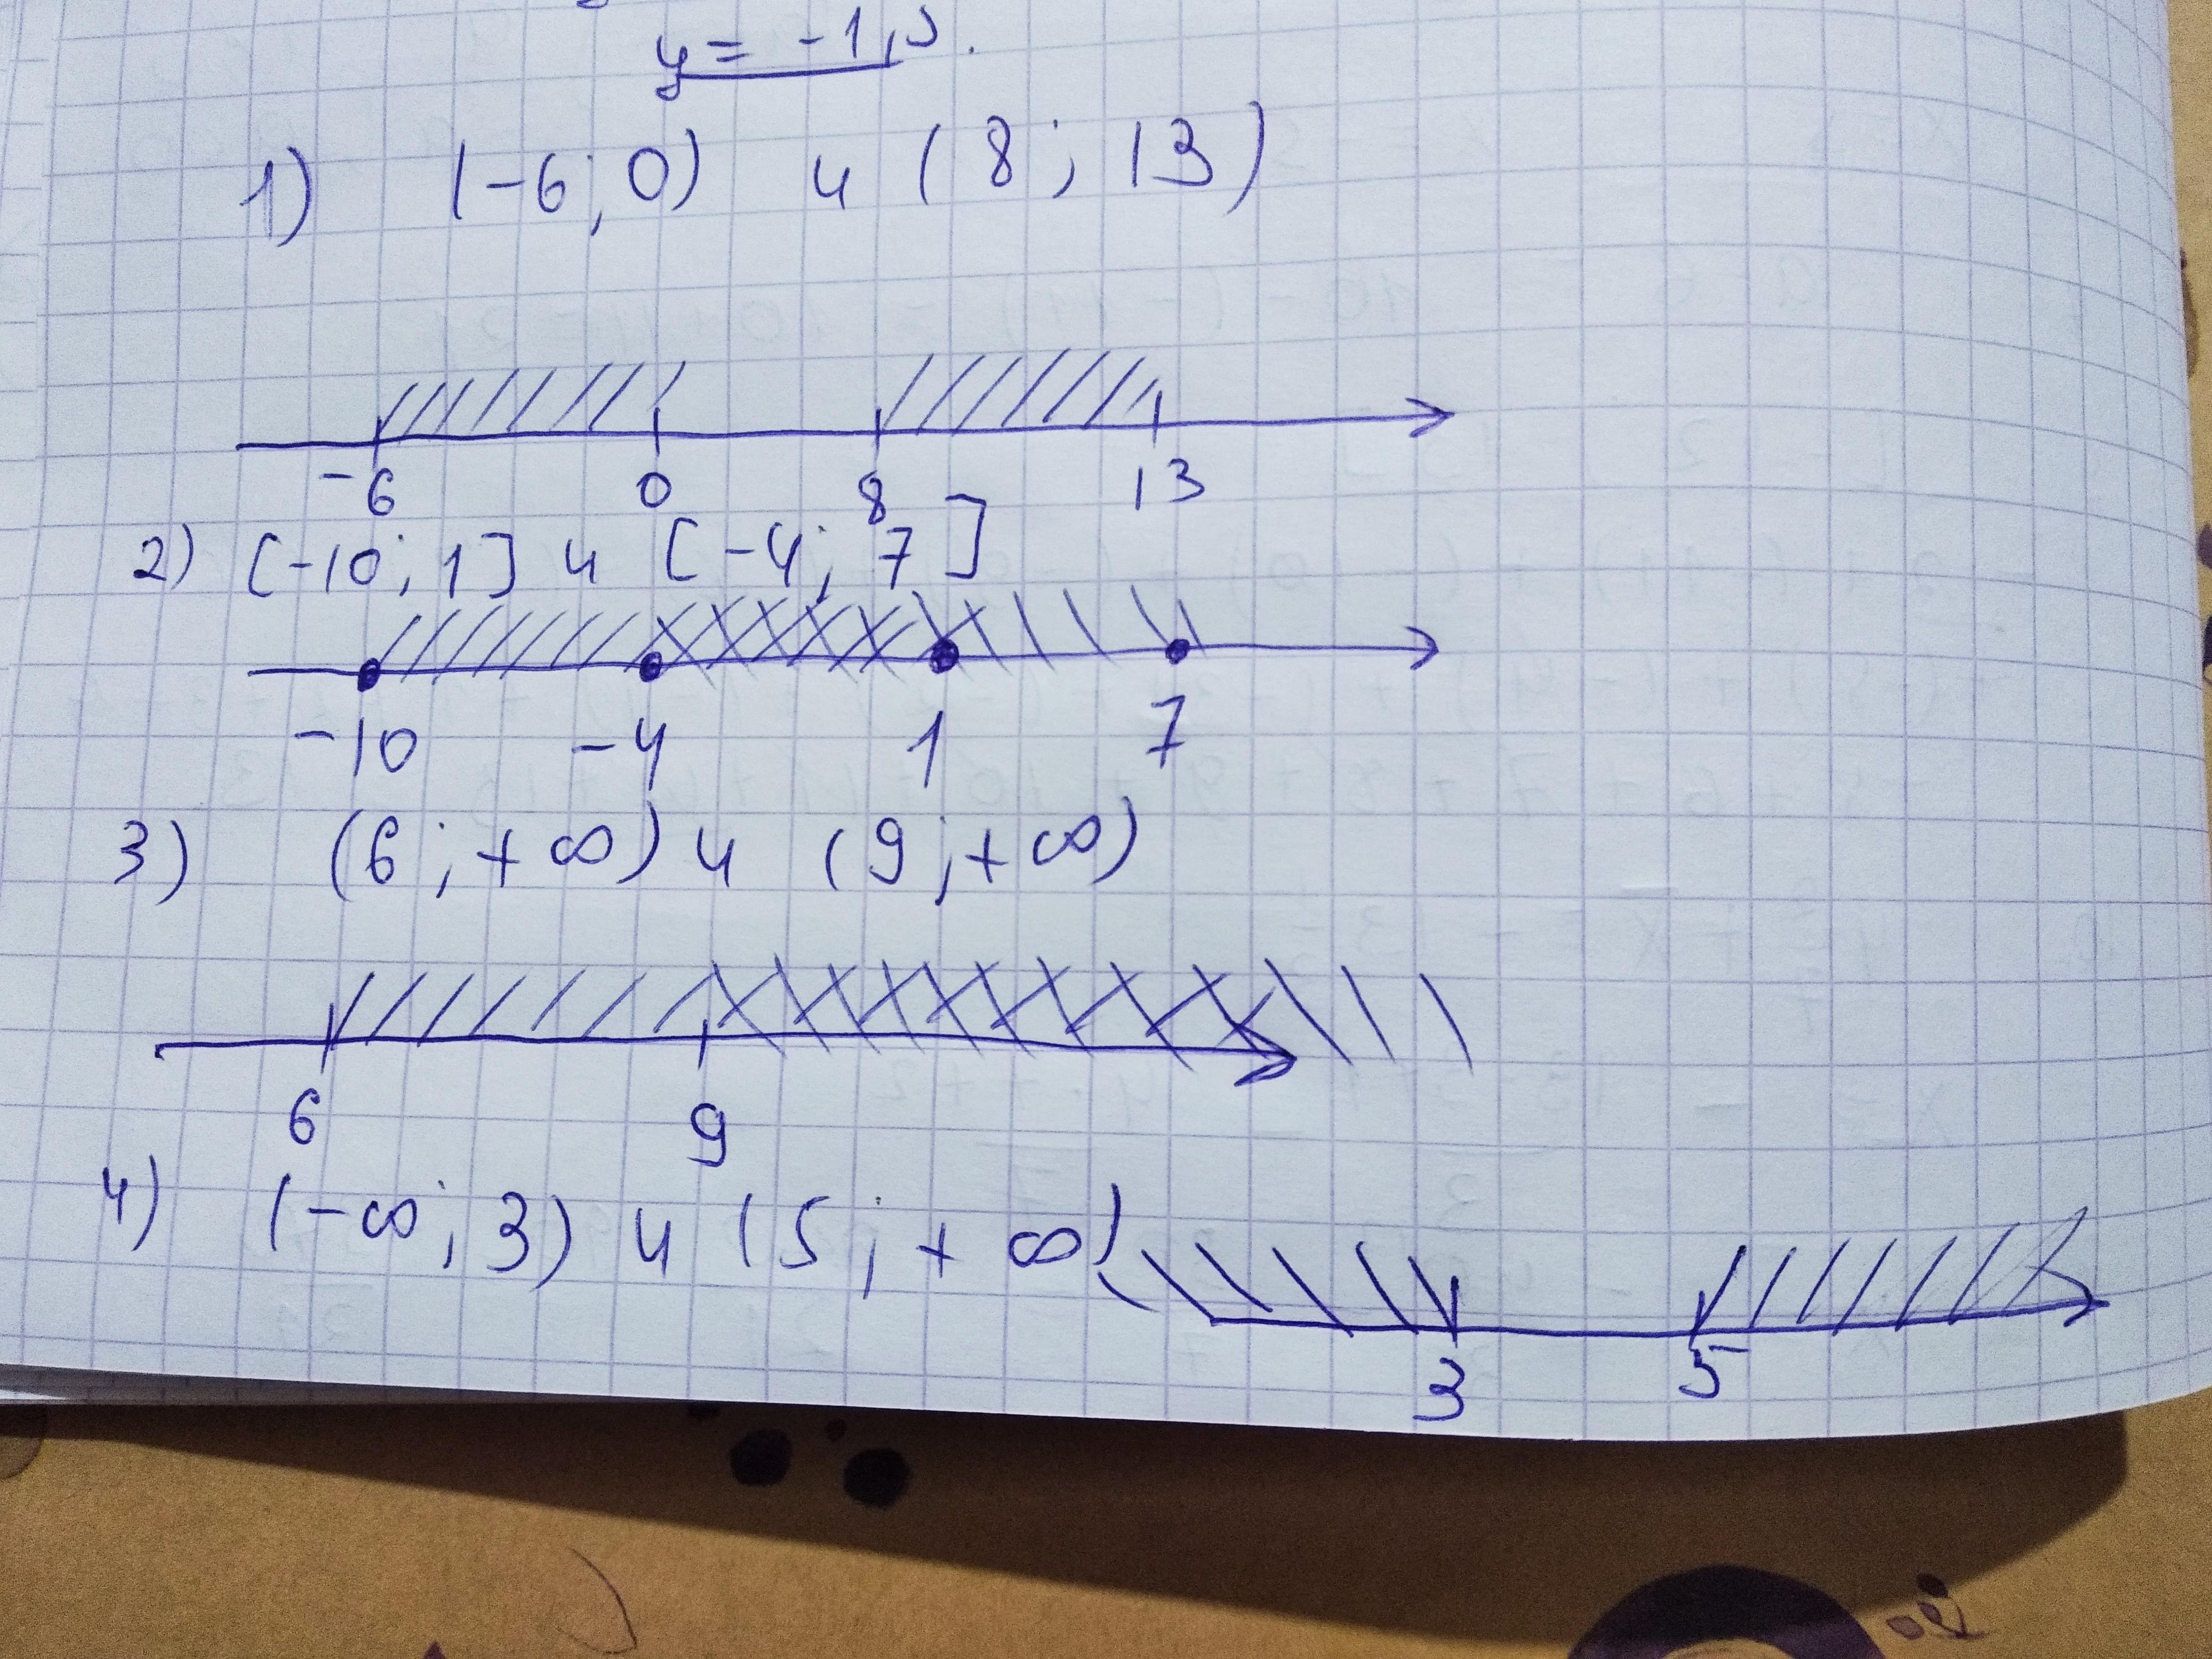 y = -1,5.
1) (-6; 0) и (8; 13)
-6 0 8 13
2) [-10; 1] и [-4; 7]
-10 -4 1 7
3) (6; +∞) и (9; +∞)
6 9
4) (-∞; 3) и (5; +∞)
3 5